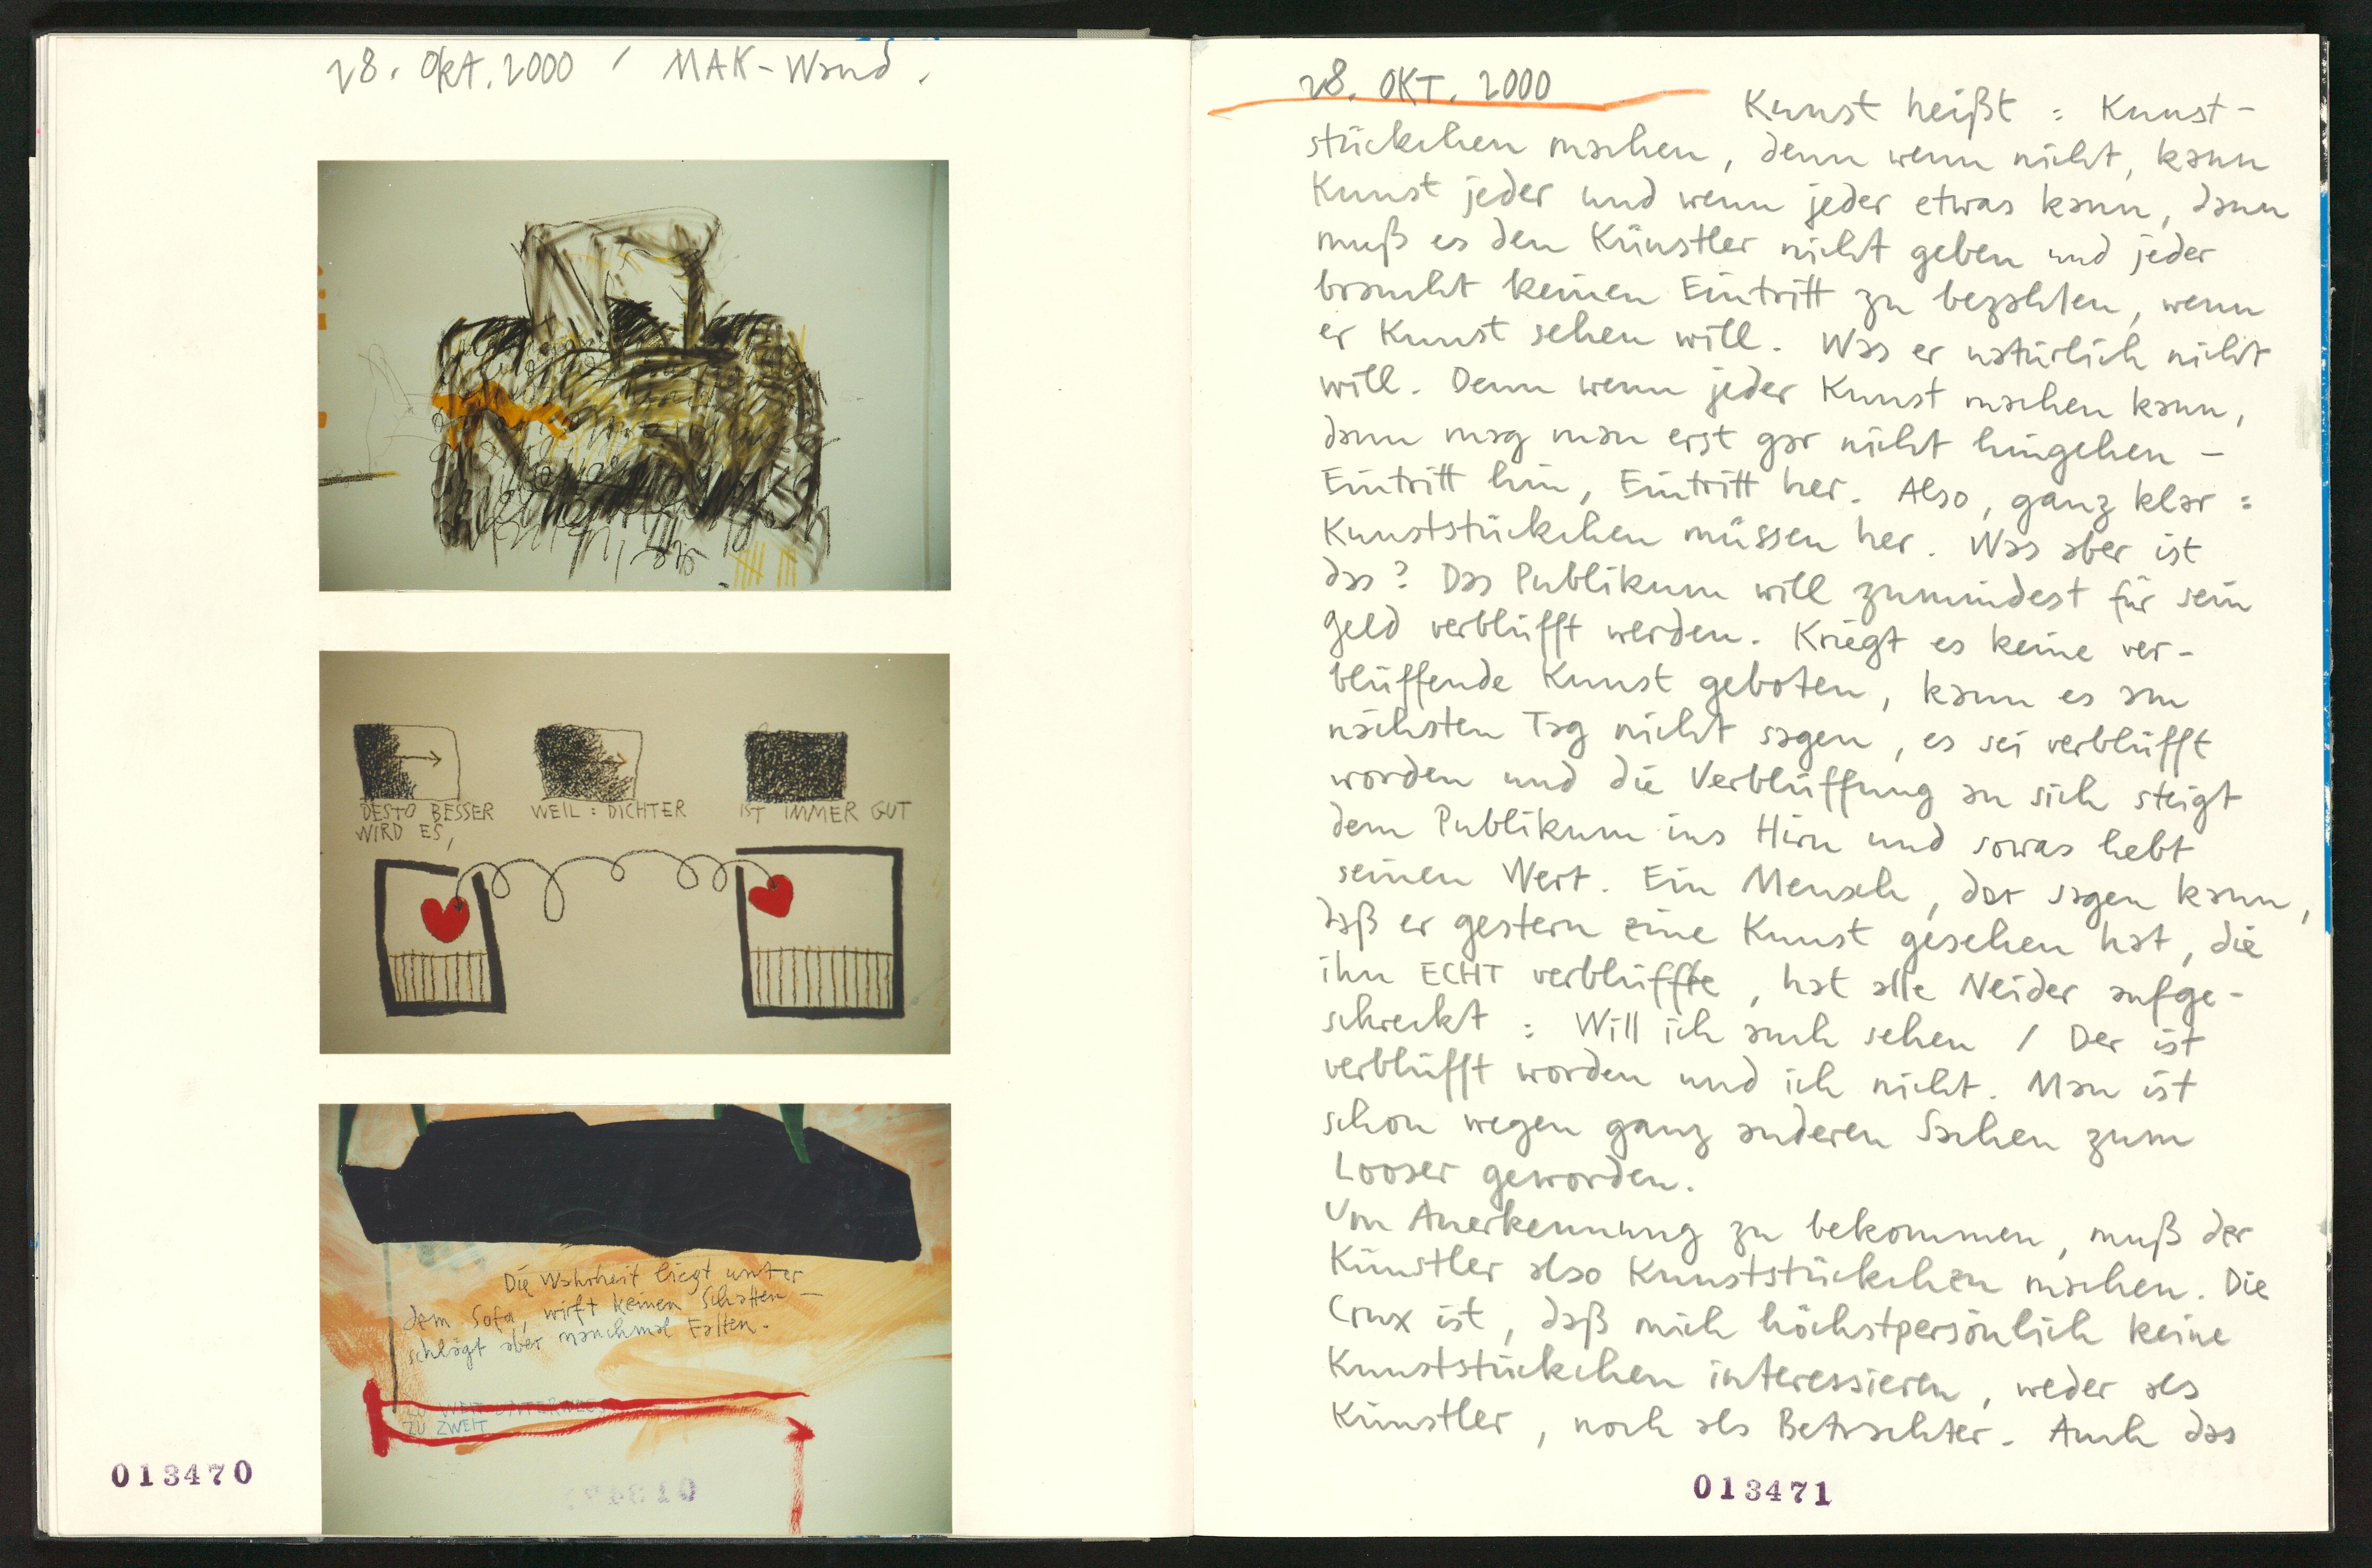 28. Okt. 2000 / MAK-Wand.
DESTO BESSER
WIRD ES,
WEIL : DICHTER
IST IMMER GUT
Die Wahrheit liegt unter
dem Sofa, wirft keinen Schatten –
schlägt aber manchmal Falten.
ZU ZWEIT
013470
28. OKT. 2000
Kunst heißt : Kunst-
stückchen machen, denn wenn nicht, kann
Kunst jeder und wenn jeder etwas kann, dann
muß es den Künstler nicht geben und jeder
braucht keinen Eintritt zu bezahlen, wenn
er Kunst sehen will. Was er natürlich nicht
will. Denn wenn jeder Kunst machen kann,
dann mag man erst gar nicht hingehen –
Eintritt hin, Eintritt her. Also, ganz klar :
Kunststückchen müssen her. Was aber ist
das? Das Publikum will zumindest für sein
Geld verblüfft werden. Kriegt es keine ver-
blüffende Kunst geboten, kann es am
nächsten Tag nicht sagen, es sei verblüfft
worden und die Verblüffung an sich steigt
dem Publikum ins Hirn und sowas hebt
seinen Wert. Ein Mensch, der sagen kann,
daß er gestern eine Kunst gesehen hat, die
ihn ECHT verblüffte, hat alle Neider aufge-
schreckt : Will ich auch sehen / Der ist
verblüfft worden und ich nicht. Man ist
schon wegen ganz anderen Sachen zum
Looser geworden.
Um Anerkennung zu bekommen, muß der
Künstler also Kunststückchen machen. Die
Crux ist, daß mich höchstpersönlich keine
Kunststückchen interessieren, weder als
Künstler, noch als Betrachter. Auch das
013471